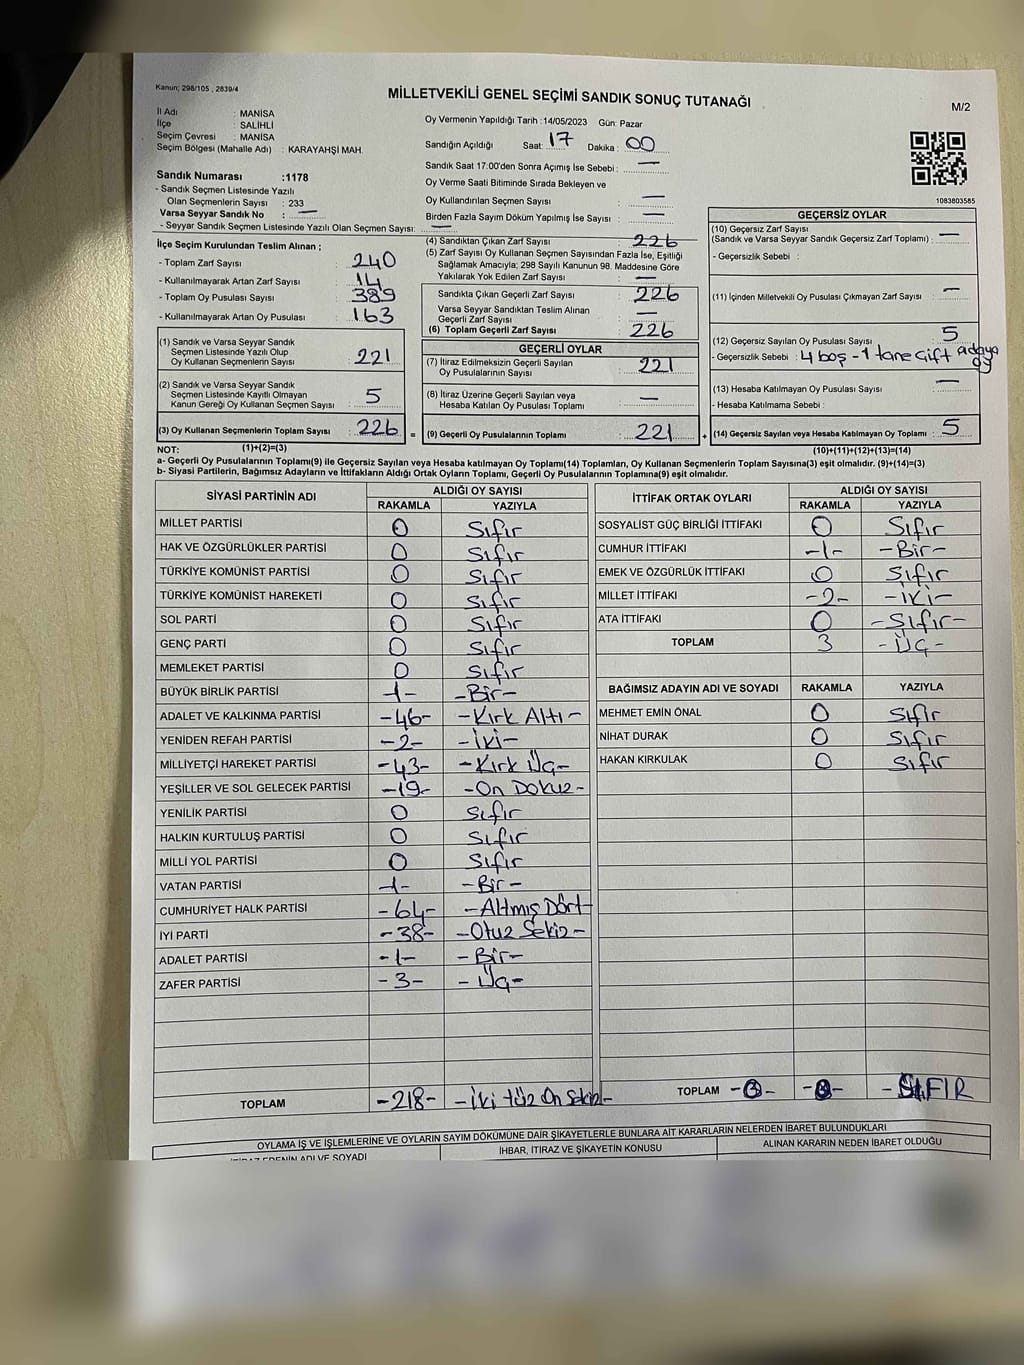 Kanun; 298/105 , 2839/4
MİLLETVEKİLİ GENEL SEÇİMİ SANDIK SONUÇ TUTANAĞI
M/2
İl Adı : MANİSA
İlçe : SALİHLİ
Seçim Çevresi : MANİSA
Seçim Bölgesi (Mahalle Adı) : KARAYAHŞİ MAH.
Sandık Numarası :1178
- Sandık Seçmen Listesinde Yazılı
Olan Seçmenlerin Sayısı : 233
Varsa Seyyar Sandık No : —
- Seyyar Sandık Seçmen Listesinde Yazılı Olan Seçmen Sayısı: —
Oy Vermenin Yapıldığı Tarih :14/05/2023 Gün: Pazar
Sandığın Açıldığı Saat: 17 Dakika : 00
Sandık Saat 17:00'den Sonra Açımış İse Sebebi : —
Oy Verme Saati Bitiminde Sırada Bekleyen ve
Oy Kullandırılan Seçmen Sayısı —
Birden Fazla Sayım Döküm Yapılmış İse Sayısı : —
1083803585
İlçe Seçim Kurulundan Teslim Alınan ;
- Toplam Zarf Sayısı : 240
- Kullanılmayarak Artan Zarf Sayısı : 14
- Toplam Oy Pusulası Sayısı : 389
- Kullanılmayarak Artan Oy Pusulası : 163
(1) Sandık ve Varsa Seyyar Sandık
Seçmen Listesinde Yazılı Olup
Oy Kullanan Seçmenlerin Sayısı : 221
(2) Sandık ve Varsa Seyyar Sandık
Seçmen Listesinde Kayıtlı Olmayan
Kanun Gereği Oy Kullanan Seçmen Sayısı : 5
(3) Oy Kullanan Seçmenlerin Toplam Sayısı : 226
(4) Sandıktan Çıkan Zarf Sayısı : 226
(5) Zarf Sayısı Oy Kullanan Seçmen Sayısından Fazla İse, Eşitliği
Sağlamak Amacıyla; 298 Sayılı Kanunun 98. Maddesine Göre
Yakılarak Yok Edilen Zarf Sayısı : —
Sandıkta Çıkan Geçerli Zarf Sayısı : 226
Varsa Seyyar Sandıktan Teslim Alınan
Geçerli Zarf Sayısı : —
(6) Toplam Geçerli Zarf Sayısı : 226
GEÇERLİ OYLAR
(7) İtiraz Edilmeksizin Geçerli Sayılan
Oy Pusulalarının Sayısı : 221
(8) İtiraz Üzerine Geçerli Sayılan veya
Hesaba Katılan Oy Pusulası Toplamı : —
= (9) Geçerli Oy Pusulalarının Toplamı : 221 +
GEÇERSİZ OYLAR
(10) Geçersiz Zarf Sayısı
(Sandık ve Varsa Seyyar Sandık Geçersiz Zarf Toplamı) : —
- Geçersizlik Sebebi :
(11) İçinden Milletvekili Oy Pusulası Çıkmayan Zarf Sayısı : —
(12) Geçersiz Sayılan Oy Pusulası Sayısı : 5
- Geçersizlik Sebebi : 4 boş - 1 tane çift adaya oy
(13) Hesaba Katılmayan Oy Pusulası Sayısı : —
- Hesaba Katılmama Sebebi :
(14) Geçersiz Sayılan veya Hesaba Katılmayan Oy Toplamı : 5
NOT: (1)+(2)=(3)
(10)+(11)+(12)+(13)=(14)
a- Geçerli Oy Pusulalarının Toplamı(9) ile Geçersiz Sayılan veya Hesaba katılmayan Oy Toplamı(14) Toplamları, Oy Kullanan Seçmenlerin Toplam Sayısına(3) eşit olmalıdır. (9)+(14)=(3)
b- Siyasi Partilerin, Bağımsız Adayların ve İttifakların Aldığı Ortak Oyların Toplamı, Geçerli Oy Pusulalarının Toplamına(9) eşit olmalıdır.
SİYASİ PARTİNİN ADI ALDIĞI OY SAYISI
RAKAMLA YAZIYLA
MİLLET PARTİSİ 0 Sıfır
HAK VE ÖZGÜRLÜKLER PARTİSİ 0 Sıfır
TÜRKİYE KOMÜNİST PARTİSİ 0 Sıfır
TÜRKİYE KOMÜNİST HAREKETİ 0 Sıfır
SOL PARTİ 0 Sıfır
GENÇ PARTİ 0 Sıfır
MEMLEKET PARTİSİ 0 Sıfır
BÜYÜK BİRLİK PARTİSİ -1- -Bir-
ADALET VE KALKINMA PARTİSİ -46- -Kırk Altı-
YENİDEN REFAH PARTİSİ -2- -İki-
MİLLİYETÇİ HAREKET PARTİSİ -43- -Kırk Üç-
YEŞİLLER VE SOL GELECEK PARTİSİ -19- -On Dokuz-
YENİLİK PARTİSİ 0 Sıfır
HALKIN KURTULUŞ PARTİSİ 0 Sıfır
MİLLİ YOL PARTİSİ 0 Sıfır
VATAN PARTİSİ -1- -Bir-
CUMHURİYET HALK PARTİSİ -64- -Altmış Dört-
İYİ PARTİ -38- -Otuz Sekiz-
ADALET PARTİSİ -1- -Bir-
ZAFER PARTİSİ -3- -Üç-
TOPLAM -218- -İki Yüz On Sekiz-
İTTİFAK ORTAK OYLARI ALDIĞI OY SAYISI
RAKAMLA YAZIYLA
SOSYALİST GÜÇ BİRLİĞİ İTTİFAKI 0 Sıfır
CUMHUR İTTİFAKI -1- -Bir-
EMEK VE ÖZGÜRLÜK İTTİFAKI 0 Sıfır
MİLLET İTTİFAKI -2- -İki-
ATA İTTİFAKI 0 -Sıfır-
TOPLAM 3 -Üç-
BAĞIMSIZ ADAYIN ADI VE SOYADI RAKAMLA YAZIYLA
MEHMET EMİN ÖNAL 0 Sıfır
NİHAT DURAK 0 Sıfır
HAKAN KIRKULAK 0 Sıfır
TOPLAM -SIFIR
OYLAMA İŞ VE İŞLEMLERİNE VE OYLARIN SAYIM DÖKÜMÜNE DAİR ŞİKAYETLERLE BUNLARA AİT KARARLARIN NELERDEN İBARET BULUNDUKLARI
İTİRAZ EDENİN ADI VE SOYADI İHBAR, İTİRAZ VE ŞİKAYETİN KONUSU ALINAN KARARIN NEDEN İBARET OLDUĞU